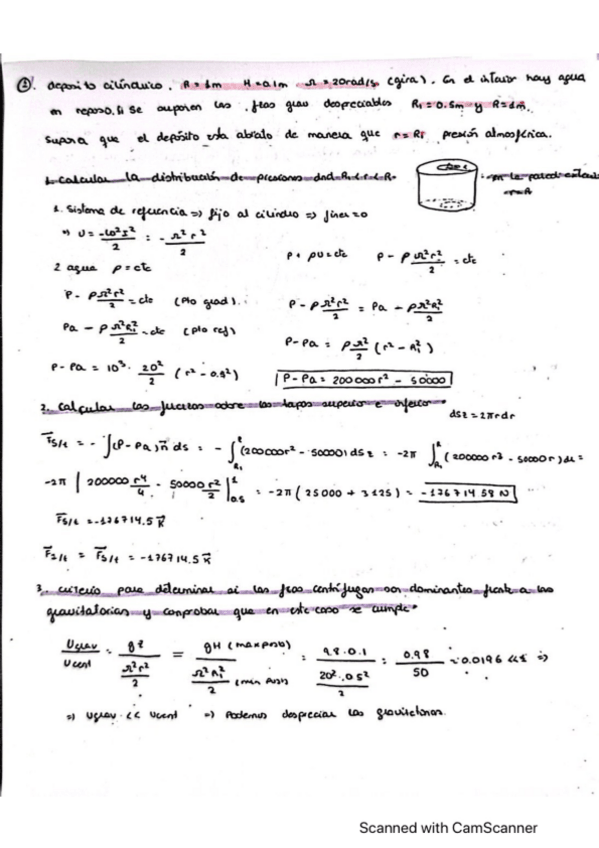 ②. deposito cilíndrico. R = 1m H=0.1m Ω = 20rad/s (gira). En el interior hay agua
en reposo. Si se suponen las fzas grav despreciables R₁=0.5m y R=1m.
Supora que el depósito esta abierto de manera que r=R₁ presión atmosférica.
1. Calcular la distribución de presiones dnd R₁<r<R.
1. Sistema de referencia => fijo al cilindro =>
U = -ω²r²/2 = -Ω²r²/2
P + ρU = cte P - ρ Ω²r²/2 = cte
2 agua ρ=cte
P - ρ Ω²r²/2 = cte (Pto gral). P - ρ Ω²r²/2 = Pa - ρ Ω²R₁²/2
Pa - ρ Ω²R₁²/2 = cte (Pto ref) P-Pa = ρ Ω²/2 (r² - R₁²)
P - Pa = 10³ · 20²/2 (r² - 0.5²) P-Pa = 200000r² - 50000
2. Calcular las fuerzas sobre las tapas superior e inferior.
dS = 2πrdr
= -∫(P-Pa) n ds = -∫ (200000r² - 50000) ds = -2π ∫ (200000r³ - 50000r) dr =
-2π | 200000 r⁴/4 - 50000 r²/2 | = -2π (25000 + 3125) = -176714.58 N
= -176714.5 K
= -176714.5 K
3. criterio para determinar si las fzas centrífugas son dominantes frente a las
gravitatorias y comprobar que en este caso se cumple.
Ugrav/Ucent = gz / (Ω²r²/2) = gH (max posib) / (Ω²R₁²/2) (min posib) = 9.8·0.1 / (20²·0.5²/2) = 0.98/50 = 0.0196 <<1 =>
=> Ugrav << Ucent => Podemos despreciar las gravitatorias.
Scanned with CamScanner